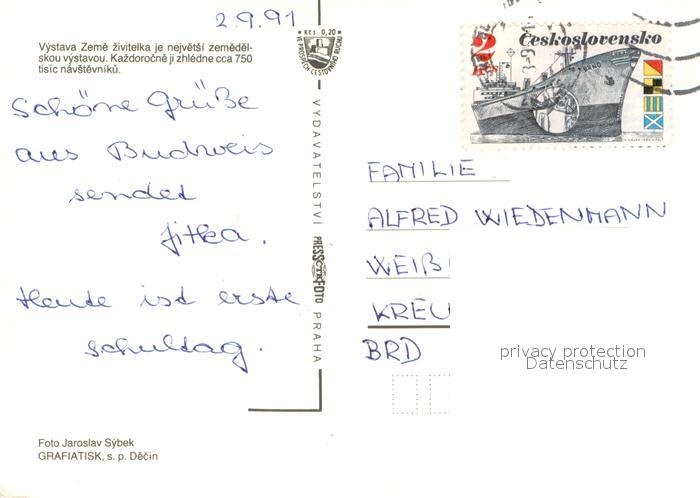 2.9.91
Výstava Země živitelka je největší zeměděl-
skou výstavou. Každoročně ji zhlédne cca 750
tisíc návštěvníků.
Schöne Grüße
aus Budweis
sendet
Jitka.
Heute ist erste
schultag.
Foto Jaroslav Sýbek
GRAFIATISK, s. p. Děčín
Kčs 0,20
VE PROSPĚCH CESTOVNÍHO RUCHU
VYDAVATELSTVÍ PRESSFOTO PRAHA
2 Kčs
Československo
FAMILIE
ALFRED WIEDENMANN
WEIß
KREU
BRD
privacy protection
Datenschutz